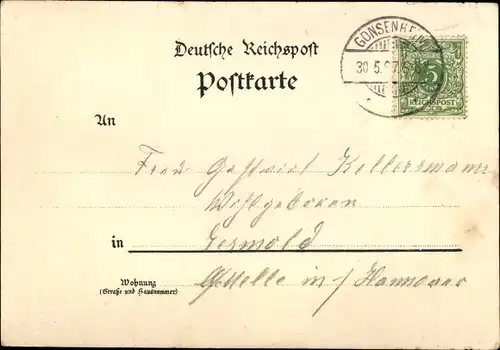 Deutsche Reichspost
Postkarte
GONSENHEIM
30 5 97
5
REICHSPOST
An
Frau Gastwirt Kellermann
Wohlgeboren
in
Wohnung
(Straße und Hausnummer)
in / Hannover